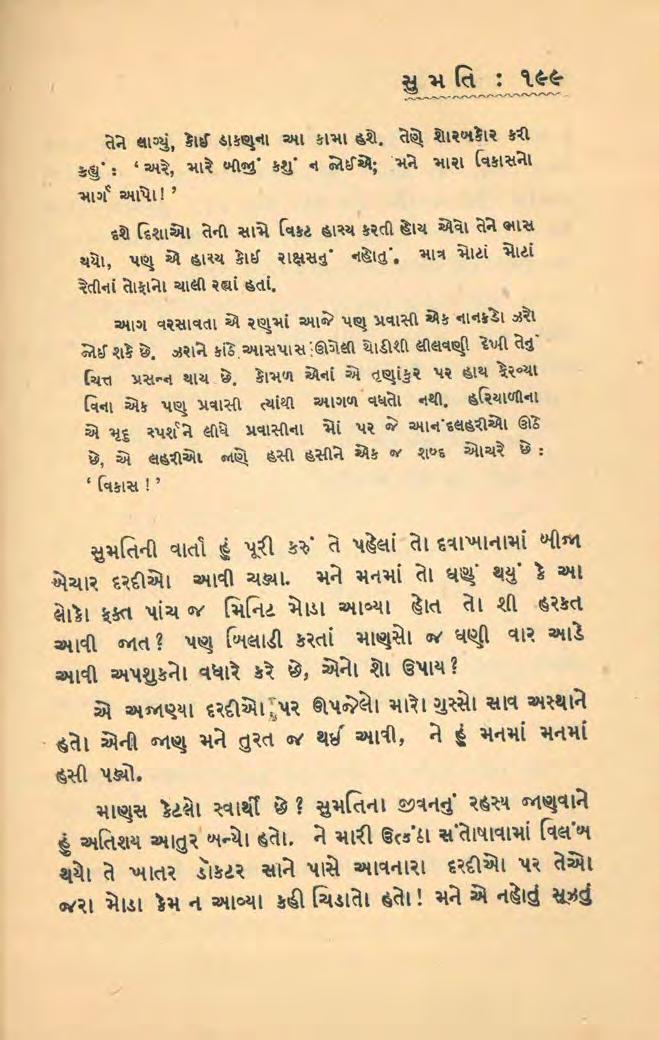 સુ મ તિ : ૧૯૯
તેને લાગ્યું, કોઈ ડાકણના આ કામા હશે. તેણે શોરબકોર કરી
કહ્યું : ‘ અરે, મારે બીજું કશું ન જોઈએ; મને મારા વિકાસનો
માર્ગ આપો ! ’
દશે દિશાઓ તેની સામે વિકટ હાસ્ય કરતી હોય એવો તેને ભાસ
થયો, પણ એ હાસ્ય કોઈ રાક્ષસનું નહોતું. માત્ર મોટાં મોટાં
રેતીનાં તોફાનો ચાલી રહ્યાં હતાં.
આગ વરસાવતા એ રણમાં આજે પણ પ્રવાસી એક નાનકડો ઝરો
જોઈ શકે છે. ઝરાને કાંઠે આસપાસ ઊગેલી થોડીશી લીલવણી દેખી તેનું
ચિત્ત પ્રસન્ન થાય છે. કોમળ એનાં એ તૃણાંકુર પર હાથ ફેરવ્યા
વિના એક પણ પ્રવાસી ત્યાંથી આગળ વધતો નથી. હરિયાળીના
એ મૃદુ સ્પર્શને લીધે પ્રવાસીના મોં પર જે આનંદલહરીઓ ઊઠે
છે, એ લહરીઓ જાણે હસી હસીને એક જ શબ્દ ઓચરે છે :
‘ વિકાસ ! ’
સુમતિની વાર્તા હું પૂરી કરું તે પહેલાં તો દવાખાનામાં બીજા
બેચાર દરદીઓ આવી ચડ્યા. મને મનમાં તો ઘણું થયું કે આ
લોકો ફક્ત પાંચ જ મિનિટ મોડા આવ્યા હોત તો શી હરકત
આવી જાત ? પણ બિલાડી કરતાં માણસો જ ઘણી વાર આડે
આવી અપશુકનો વધારે કરે છે, એનો શો ઉપાય ?
એ અજાણ્યા દરદીઓ પર ઊપજેલો મારો ગુસ્સો સાવ અસ્થાને
હતો એની જાણ મને તુરત જ થઈ આવી, ને હું મનમાં મનમાં
હસી પડ્યો.
માણસ કેટલો સ્વાર્થી છે ? સુમતિના જીવનનું રહસ્ય જાણવાને
હું અતિશય આતુર બન્યો હતો. ને મારી ઉત્કંઠા સંતોષાવામાં વિલંબ
થયો તે ખાતર ડૉક્ટર સાને પાસે આવનારા દરદીઓ પર તેઓ
જરા મોડા કેમ ન આવ્યા કહી ચિડાતો હતો ! મને એ નહોતું સૂઝતું